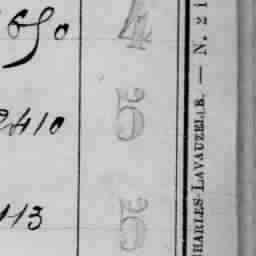 650 4
2410 5
113 5
CHARLES-LAVAUZELLE. — N. 21